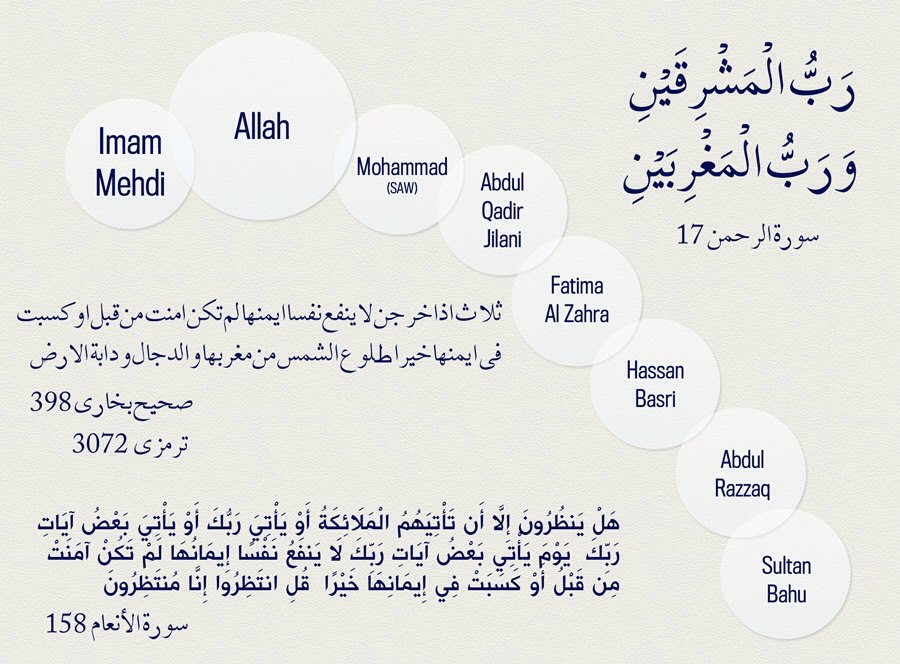 Imam
Mehdi
Allah
Mohammad
(SAW)
Abdul
Qadir
Jilani
Fatima
Al Zahra
Hassan
Basri
Abdul
Razzaq
Sultan
Bahu
رَبُّ الْمَشْرِقَيْنِ
وَرَبُّ الْمَغْرِبَيْنِ
سورة الرحمن 17
ثلاث اذا خرجن لا ينفع نفسا ايمنها لم تكن امنت من قبل او كسبت
فى ايمنها خيرا طلوع الشمس من مغربها و الدجال و دابة الارض
صحيح بخارى 398
ترمزى 3072
هَلْ يَنظُرُونَ إِلَّا أَن تَأْتِيَهُمُ الْمَلَائِكَةُ أَوْ يَأْتِيَ رَبُّكَ أَوْ يَأْتِيَ بَعْضُ آيَاتِ
رَبِّكَ يَوْمَ يَأْتِي بَعْضُ آيَاتِ رَبِّكَ لَا يَنفَعُ نَفْسًا إِيمَانُهَا لَمْ تَكُنْ آمَنَتْ
مِن قَبْلُ أَوْ كَسَبَتْ فِي إِيمَانِهَا خَيْرًا قُلِ انتَظِرُوا إِنَّا مُنتَظِرُونَ
سورة الأنعام 158